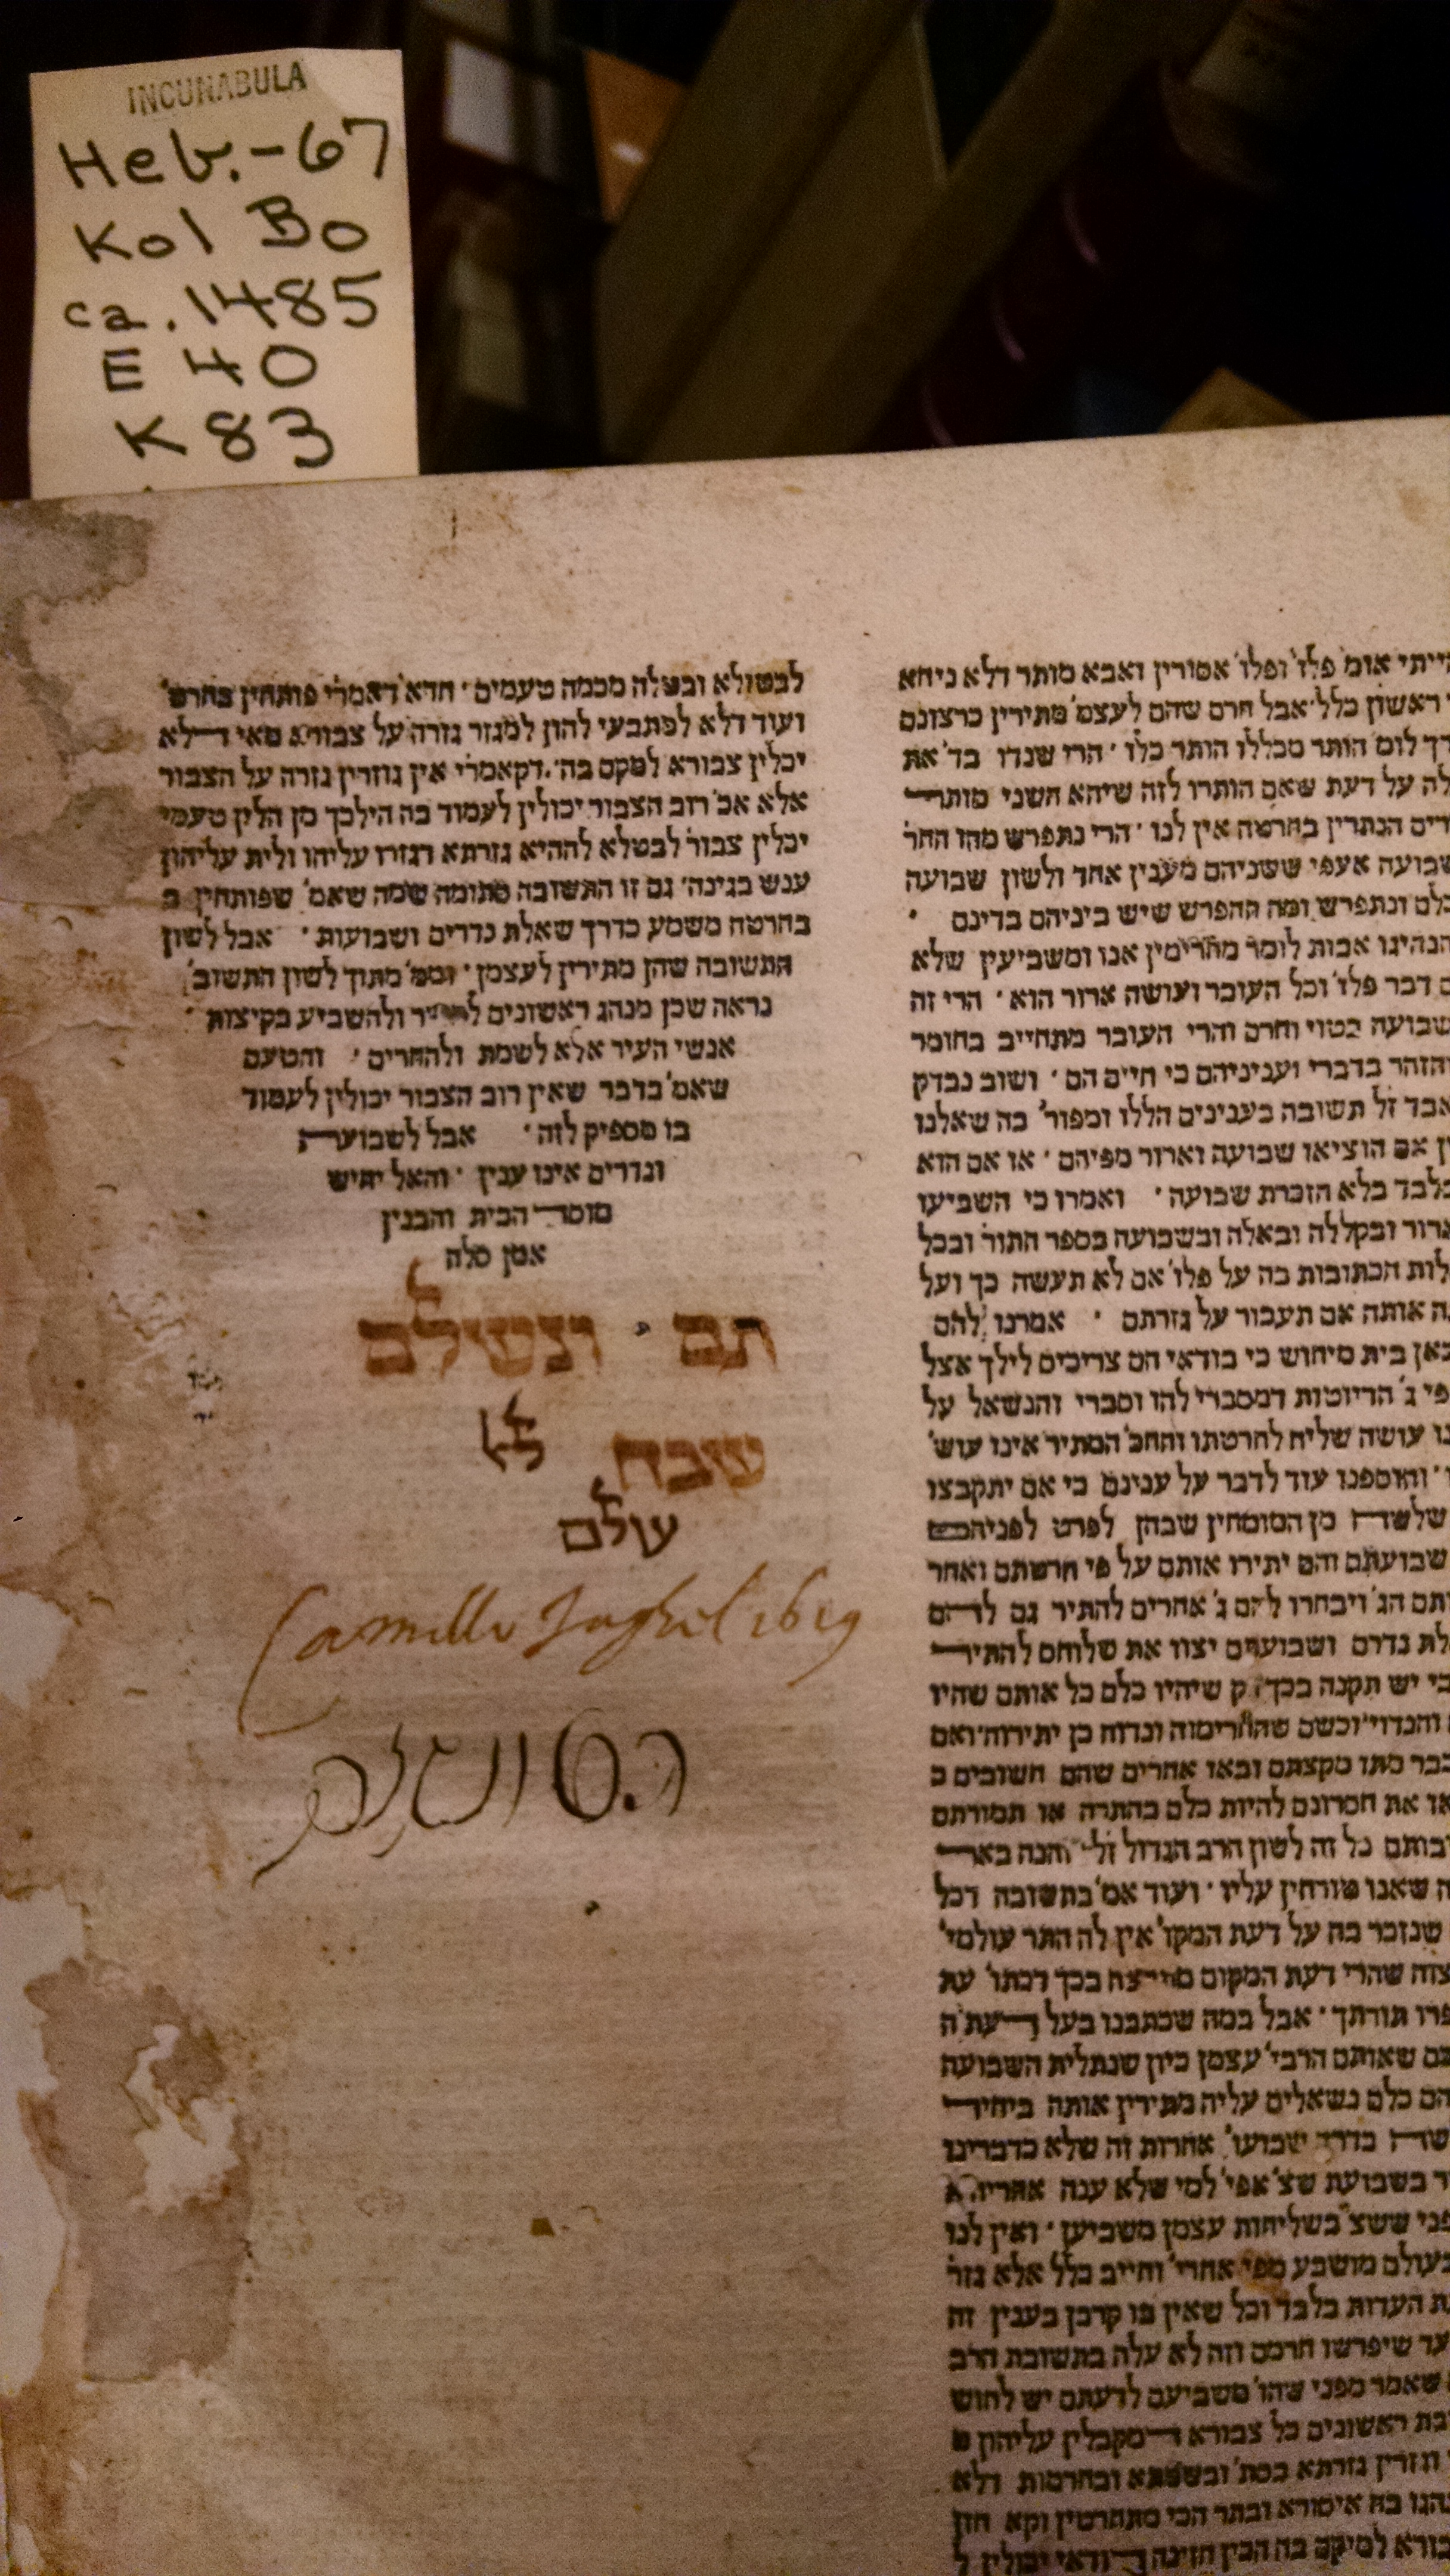 INCUNABULA
Heb.-67
Kol Bo
ca. 1485
E 40
K 83
ייתי אומ' פלו' ופלו' אסורין ואבא מותר דלא ניחא
ראשון כלל אבל חרם שהם לעצמ' מתירין כרצונם
דך לומ' הותר מכללו הותר כלו' הרי שנדו בד' את
לה על דעת שאם הותרו לזה שיהא השני מותר
דים הנתרין בחרטה אין לנו' הרי נתפרש מהו החר'
שבועה אעפי' ששניהם מענין אחד ולשון שבועה
כלם ונתפרש ומה ההפרש שיש ביניהם בדינם
הנהיגו אבות לומר מחרימין אנו ומשביעין שלא
ם דבר פלו' וכל העובר ועושה ארור הוא' הרי זה
שבועה בטוי וחרם והרי העובר מתחייב בחומר
והזהר בדברי ועניניהם כי חיים הם' ושוב נבדק
אבד ז"ל תשובה בענינים הללו ומפור' בה שאלנו
ן אם הוציאו שבועה וארור מפיהם' או אם הוא
בלבד בלא הזכרת שבועה' ואמרו כי השביעו
ארור ובקללה ובאלה ובשבועה בספר התור' ובכל
לות הכתובות בה על פלו' אם לא תעשה כך ועל
ה אותה אם תעבור על גזרתם' אמרנו להם
כאן בית מיחוש כי בודאי הם צריכים לילך אצל
פי ג' הדיוטות דמסברי להו וסברי והנשאל על
נו עושה שליח לחרטתו והחכ' המתיר אינו עוש'
והוספנו עוד לדבר על ענינם כי אם יתקבצו
שלשה מן המומחין שבהן לפרט לפניהם
שבועתם והם יתירו אותם על פי חרטתם ואחר
ותם הג' ויבחרו להם ג' אחרים להתיר גם להם
לת נדרם ושבועתם יצוו את שלוחם להתיר
כי יש תקנה בכך ק שיהיו כלם כל אותם שהיו
והנדוי' וכשם שהחרימוה ונדוה כן יתירוה' ואם
כבר מתו מקצתם ובאו אחרים שהם חשובים כ
או את חסרונם להיות כלם בהתרה או תמורתם
בותם כל זה לשון הרב הגדול ז"ל' והנה באר
ה שאנו טורחין עליו' ועוד אמ' בתשובה דכל
שנזכר בה על דעת המקו' אין לה התר עולמי'
צוה שהרי דעת המקום בכך דכתו' עת
פרו תורתך' אבל במה שכתבנו בעל דעת ה
כם שאותם הרבי' עצמן כיון שנתלית השבועה
הם כלם נשאלים עליה מתירין אותה ביחיד
בדרך שבועו' אחרות זה שלא כדברינו
ר בשבועת שצ' אפי' למי שלא ענה אחריה א
פני ששצ' בשליחות עצמן משביען' ואין לנו
בעולם מושבע מפי אחרי' וחייב כלל אלא גזר'
ת העדות בלבד וכל שאין בו קרבן בענין זה
עד שיפרשו חרמם וזה לא עלה בתשובת הרב
שאמר מפני שהו' משביעם לדעתם יש לחוש
בת ראשונים כל צבורא דמקבלין עליהון
וגזרין גזרתא בסת' ובשמתא ובחרמות דלא
נהגו בה איסורא ובתר הכי מתחרטין וקא חזו
בורא למיקם בה הכין חזינה דודאי יכולין ל
לבטולא ובטלה מכמה טעמים' חדא דאמרי' פותחין בחרט'
ועוד דלא למתבעי להון למגזר גזרה על צבורא מאי דלא
יכלין צבורא למקם בה' דקאמרי' אין גוזרין גזרה על הצבור
אלא אכ' רוב הצבור יכולין לעמוד בה הילכך מן הלין טעמי
יכלין צבור' לבטלא לההיא גזרתא דגזרו עליהו ולית עליהון
ענש בגינה' גם זו התשובה סתומה שמה שאמ' שפותחין ב
בחרטה משמע כדרך שאלת נדרים ושבועות' אבל לשון
התשובה שהן מתירין לעצמן' ומפ' מתוך לשון התשוב'
נראה שכן מנהג ראשונים ולהשביע בקיצות
אנשי העיר אלא לשמת ולהחרים' והטעם
שאמ' בדבר שאין רוב הצבור יכולין לעמוד
בו מספיק לזה' אבל לשבועה
ונדרים אינו ענין' והאל יחיש
מוסד הבית והבנין
אמן סלה
תם ונשלם
שבח לא
עולם
Camillo Jaghel 1619